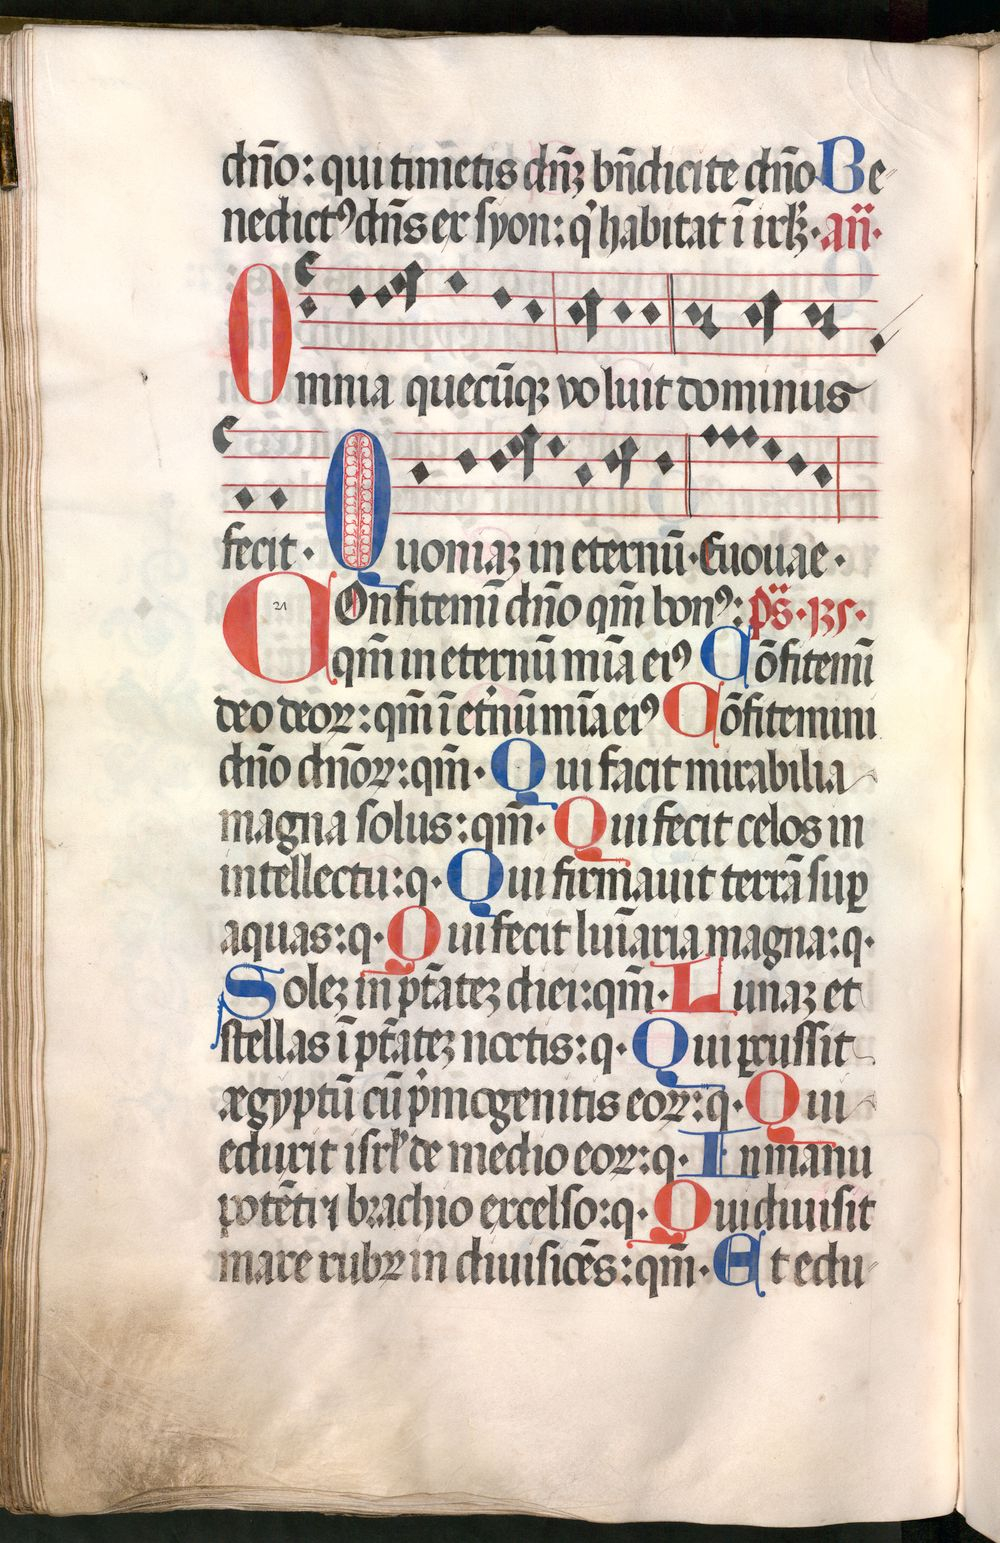 dño: qui timetis dñꝫ bñdicite dño Be
nedictꝰ dñs ex syon: q̇ habitat ī irlꝫ. añ.
Omnia quecūqꝫ voluit dominus
fecit. Quoniaꝫ in eternū. Euouae.
21
Confitemī dño qm̄ bonꝰ: p̄s. 135.
qm̄ in eternū mīa eiꝰ Cōfitemī
deo deoꝝ: qm̄ ī et̓nū mīa eiꝰ Cōfitemini
dño dñoꝝ: qm̄. Qui facit mirabilia
magna solus: qm̄. Qui fecit celos in
intellectu: q. Qui firmauit terrā suꝑ
aquas: q. Qui fecit luīaria magna: q.
Soleꝫ in p̄tateꝫ diei: qm̄. Lunaꝫ et
stellas ī p̄tateꝫ noctis: q. Qui ꝑcussit
ægyptū cū p̓mogenitis eoꝝ: q. Qui
eduxit isrl̓ de medio eoꝝ: q. In manu
potēti ⁊ brachio excelso: q. Qui diuisit
mare rubꝝ in diuisiōes: qm̄. Et edu